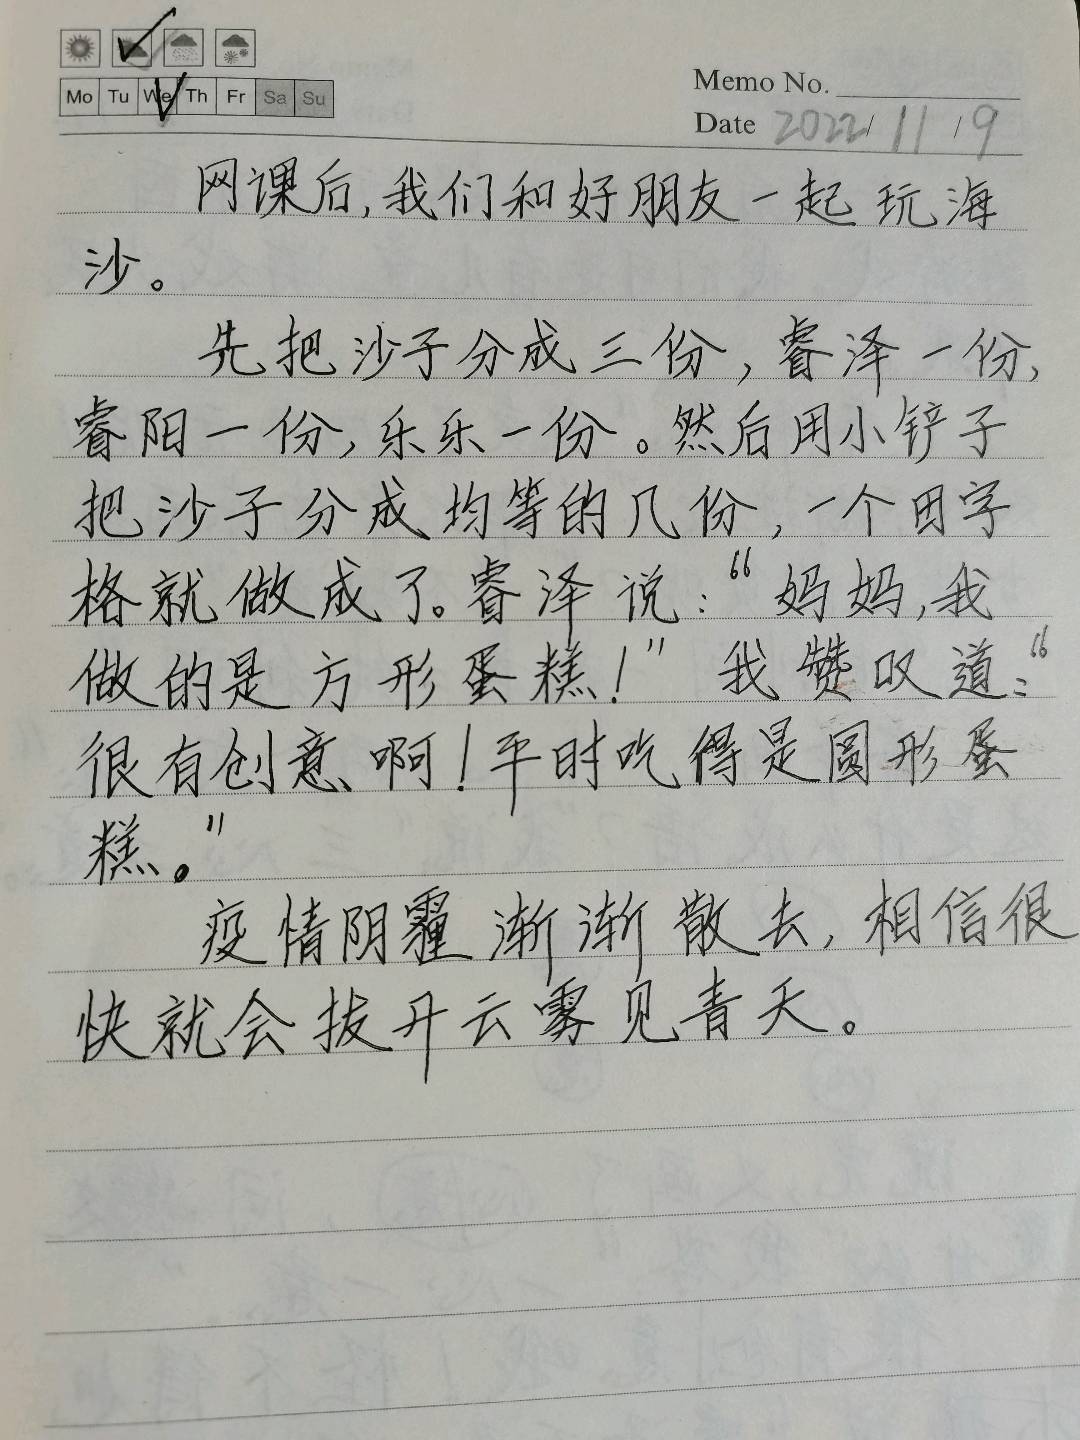 Mo Tu We Th Fr Sa Su
Memo No.
Date 2022/11/9
网课后,我们和好朋友一起玩海
沙。
先把沙子分成三份,睿泽一份,
睿阳一份,乐乐一份。然后用小铲子
把沙子分成均等的几份,一个田字
格就做成了。睿泽说:“妈妈,我
做的是方形蛋糕!”我赞叹道:“
很有创意、啊!平时吃得是圆形蛋
糕。”
疫情阴霾渐渐散去,相信很
快就会拔开云雾见青天。